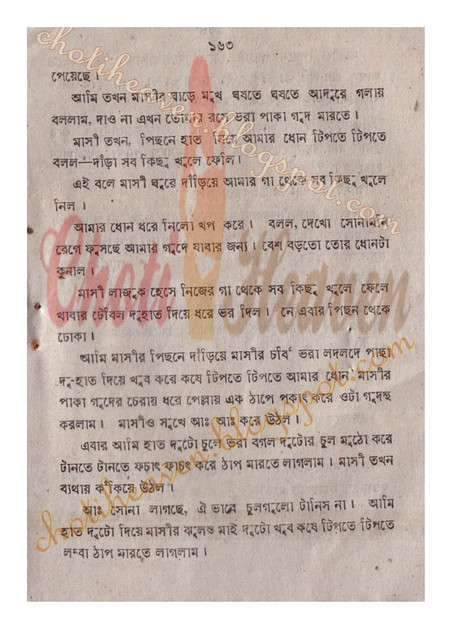 ১৬৩
পেয়েছে।
আমি তখন মাসীর ঘাড়ে মুখ ঘষতে ঘষতে আদুরে গলায়
বললাম, দাও না এখন তোমার রসে ভরা পাকা গুদ মারতে।
মাসী তখন, পিছনে হাত দিয়ে আমার ধোন টিপতে টিপতে
বলল—দাঁড়া সব কিছু খুলে ফেলি।
এই বলে মাসী ঘুরে দাঁড়িয়ে আমার গা থেকে সব কিছু খুলে
নিল।
আমার ধোন ধরে নিলো খপ করে। বলল, দেখো সোনামনি
রেগে ফুসছে আমার গুদে যাবার জন্য। বেশ বড়তো তোর ধোনটা
কুনাল।
মাসী লাজুক হেসে নিজের গা থেকে সব কিছু খুলে ফেলে
খাবার টেবিল দুহাত দিয়ে ধরে ভর দিল। নে এবার পিছন থেকে
ঢোকা।
আমি মাসীর পিছনে দাঁড়িয়ে মাসীর চর্বি ভরা লদলদে পাছা
দু-হাত দিয়ে খুব করে কষে টিপতে টিপতে আমার ধোন মাসীর
পাকা গুদের চেরায় ধরে পেল্লায় এক ঠাপে পকাৎ করে ওটা গুদস্থ
করলাম। মাসীও সুখে আঃ আঃ করে উঠল।
এবার আমি হাত দুটো চুলে ভরা বগল দুটোর চুল মুঠো করে
টানতে টানতে ফচাৎ ফাচৎ করে ঠাপ মারতে লাগলাম। মাসী তখন
ব্যথায় কঁকিয়ে উঠল।
আঃ সোনা লাগছে, ঐ ভাবে চুলগুলো টানিস না। আমি
হাত দুটো দিয়ে মাসীর ঝুলন্ত মাই দুটো খুব কষে টিপতে টিপতে
লম্বা ঠাপ মারতে লাগলাম।
Choti Heaven
chotiheaven.blogspot.com
chotiheaven.blogspot.com
chotiheaven.blogspot.com